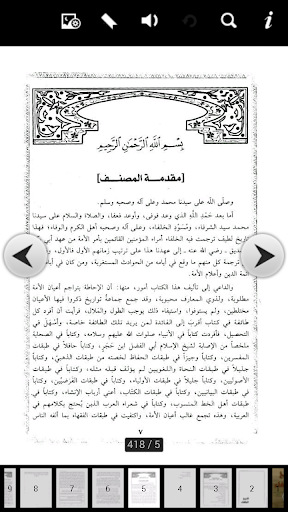 بِسْمِ اللَّهِ الرَّحْمَنِ الرَّحِيمِ
[مقدمة المصنف]
وصلّى اللّه على سيدنا محمد وعلى آله وصحبه وسلم.
أما بعد حَمْدِ اللَّهِ الذي وعد فوفى، وأوعد فعفا، والصلاة والسلام على سيدنا
محمد سيد الشرفاء، ومسوّد الخلفاء، وعلى آله وصحبه أهل الكرم والوفاء؛ فهذا
تاريخ لطيف ترجمت فيه الخلفاء أمراء المؤمنين القائمين بأمر الأمة من عهد أبي بكر
الصديق ـ رضي الله عنه ـ إلى عهدنا هذا على ترتيب زمانهم الأول فالأول، وذكرت
في ترجمة كل منهم ما وقع في أيامه من الحوادث المستغربة، ومن كان في أيامه من
أئمة الدين وأعلام الأمة.
والداعي إلى تأليف هذا الكتاب أمور، منها: أن الإحاطة بتراجم أعيان الأمة
مطلوبة، ولذوي المعارف محبوبة، وقد جمع جماعةٌ تواريخ ذكروا فيها الأعيان
مختلطين، ولم يستوفوا، واستيفاء ذلك يوجب الطول والملال، فأردت أن أفرد كل
طائفة في كتاب أقرب إلى الفائدة لمن يريد تلك الطائفة خاصة، وأسهل في
التحصيل، فأفردت كتاباً في الأنبياء صلوات الله عليهم وسلامه، وكتاباً في الصحابة
ملخصاً من الإصابة لشيخ الإسلام أبي الفضل ابن حَجَر، وكتاباً حافلاً في طبقات
المفسرين، وكتاباً وجيزاً في طبقات الحفاظ لخصته من طبقات الذهبي، وكتاباً
جليلاً في طبقات النحاة واللغويين لم يؤلف قبله مثله، وكتاباً في طبقات
الأصوليين، وكتاباً جليلاً في طبقات الأولياء، وكتاباً في طبقات الفَرَضيين، وكتاباً
في طبقات البيانيين، وكتاباً في طبقات الكتّاب، أعني أرباب الإنشاء، وكتاباً في
طبقات أهل الخط المنسوب، وكتاباً في شعراء العرب الذين يُحتج بكلامهم في
العربية، وهذه تجمع غالب أعيان الأمة، واكتفيت في طبقات الفقهاء بما ألفه الناس
٧
418 / 5
9
8
7
6
5
4
3
2